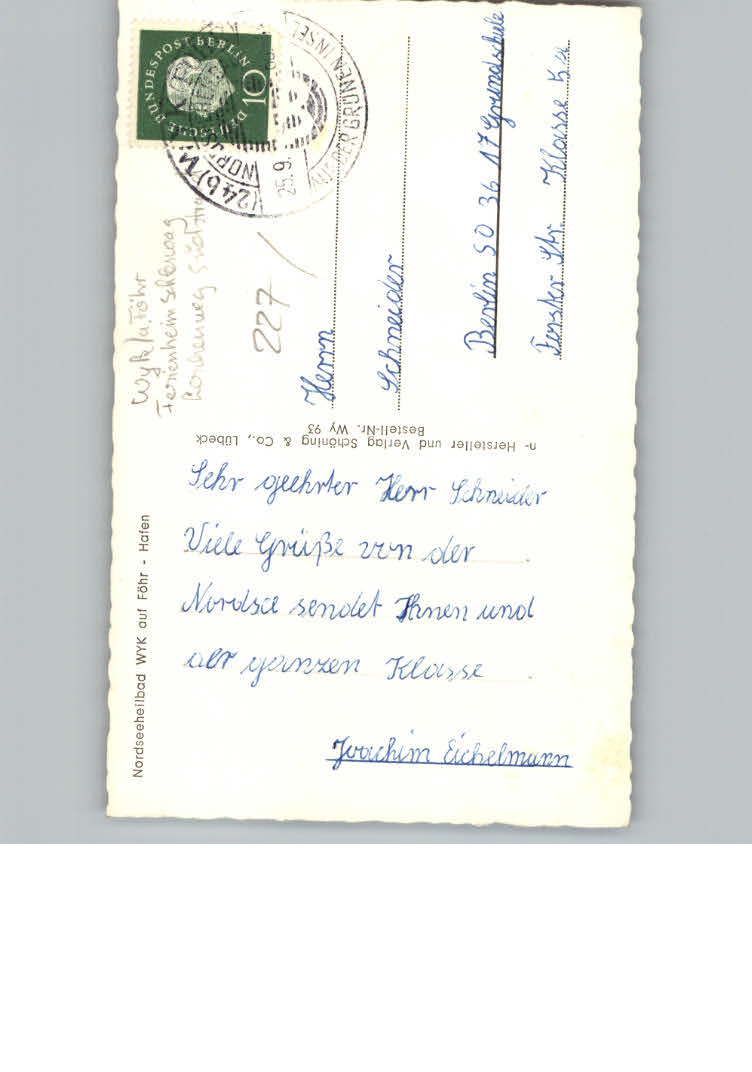 DEUTSCHE BUNDESPOST BERLIN
10
(24b) WYK
NORDSEE
25.9.
AUF DER GRÜNEN INSEL
Wyk/a. Föhr
Ferienheim Schöneberg
227 /
Herrn
Schneider
Berlin SO 36 17 Grundschule
Forster Str. Klasse 5a
n- Hersteller und Verlag Schöning & Co., Lübeck
Bestell-Nr. Wy 93
Nordseeheilbad WYK auf Föhr - Hafen
Sehr geehrter Herr Schneider
Viele Grüße von der
Nordsee sendet Ihnen und
der ganzen Klasse
Joachim Eichelmann